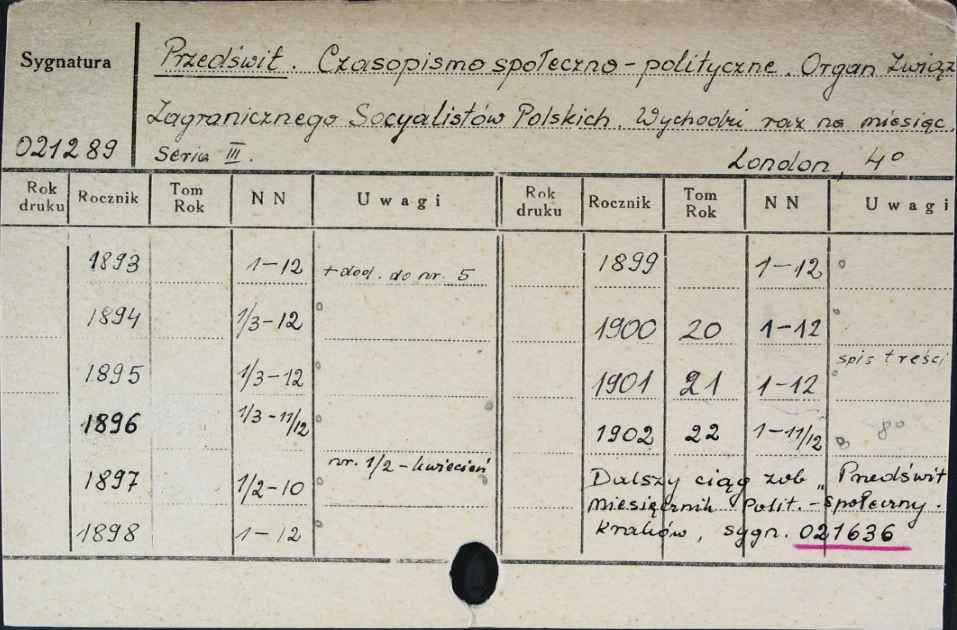 Sygnatura
Przedświt. Czasopismo społeczno-polityczne. Organ Związ
Zagranicznego Socyalistów Polskich. Wychodzi raz na miesiąc.
021289 Seria III. London, 4°
Rok druku Rocznik Tom Rok NN Uwagi Rok druku Rocznik Tom Rok NN Uwagi
1893 1-12 + dod. do nr. 5 1899 1-12
1894 1/3-12 1900 20 1-12
1895 1/3-12 1901 21 1-12 spis treści
1896 1/3-11/12 1902 22 1-11/12 8°
1897 1/2-10 nr. 1/2 - kwiecień Dalszy ciąg zob „Przedświt
miesięcznik Polit.-społeczny.
1898 1-12 Kraków, sygn. 021636